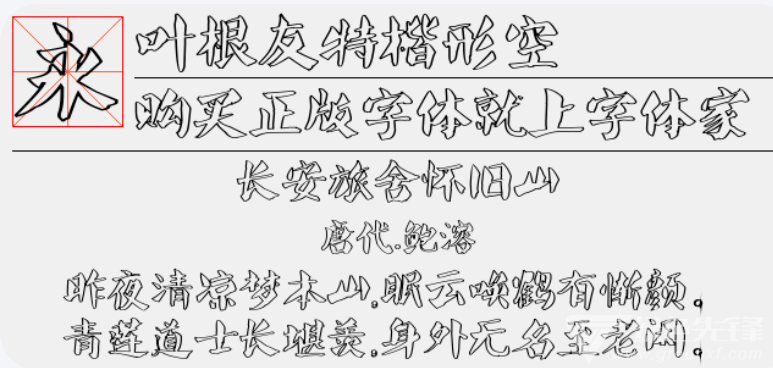 永
叶根友特楷形空
购买正版字体就上字体家
长安旅舍怀旧山
唐代.鲍溶
昨夜清凉梦本山.眠云唤鹤有惭颜。
青莲道士长堪羡.身外无名至老闲。